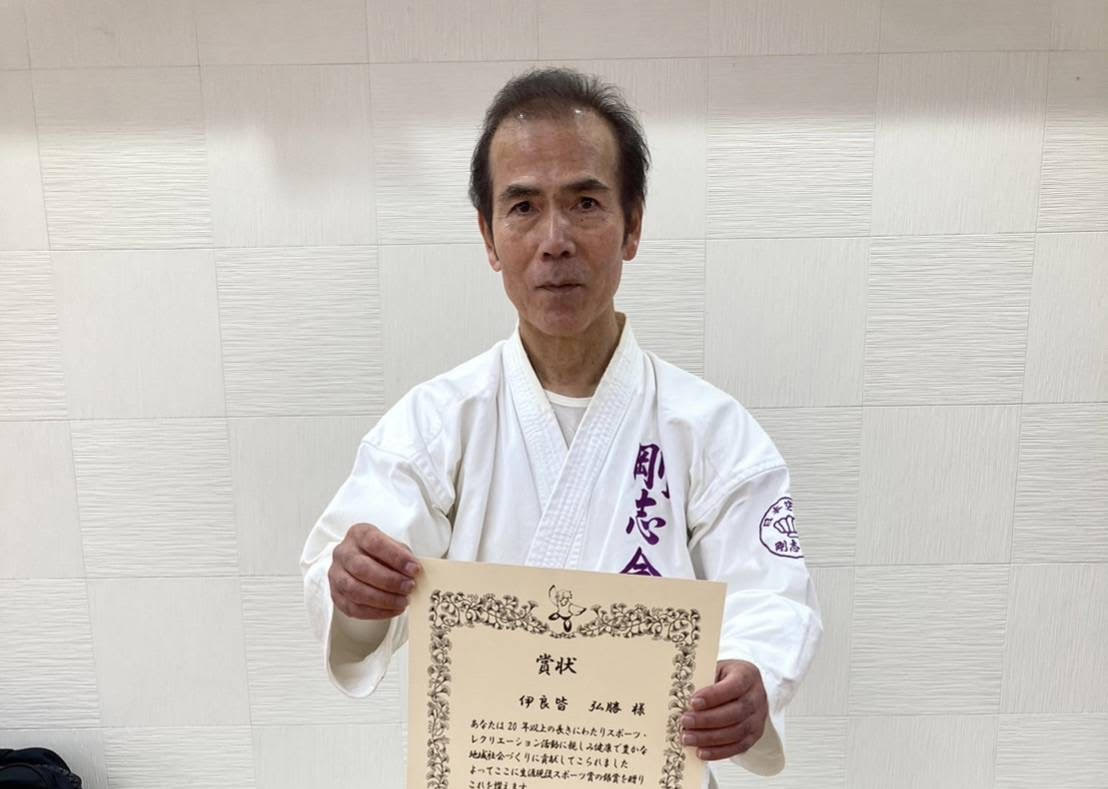 剛志会
剛志
賞状
伊良皆 弘勝 様
あなたは20年以上の長きにわたりスポーツ・
レクリエーション活動に親しみ健康で豊かな
地域社会づくりに貢献してこられました
よってここに生涯現役スポーツ賞の銀賞を贈り
これを讃えます